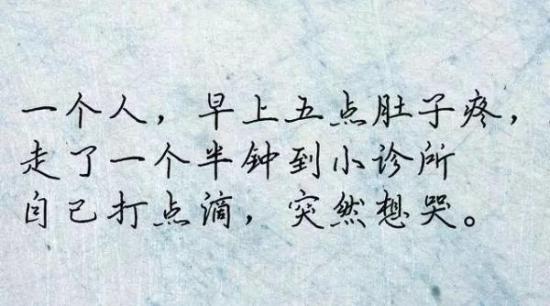 一个人，早上五点肚子疼，
走了一个半钟到小诊所
自己打点滴，突然想哭。